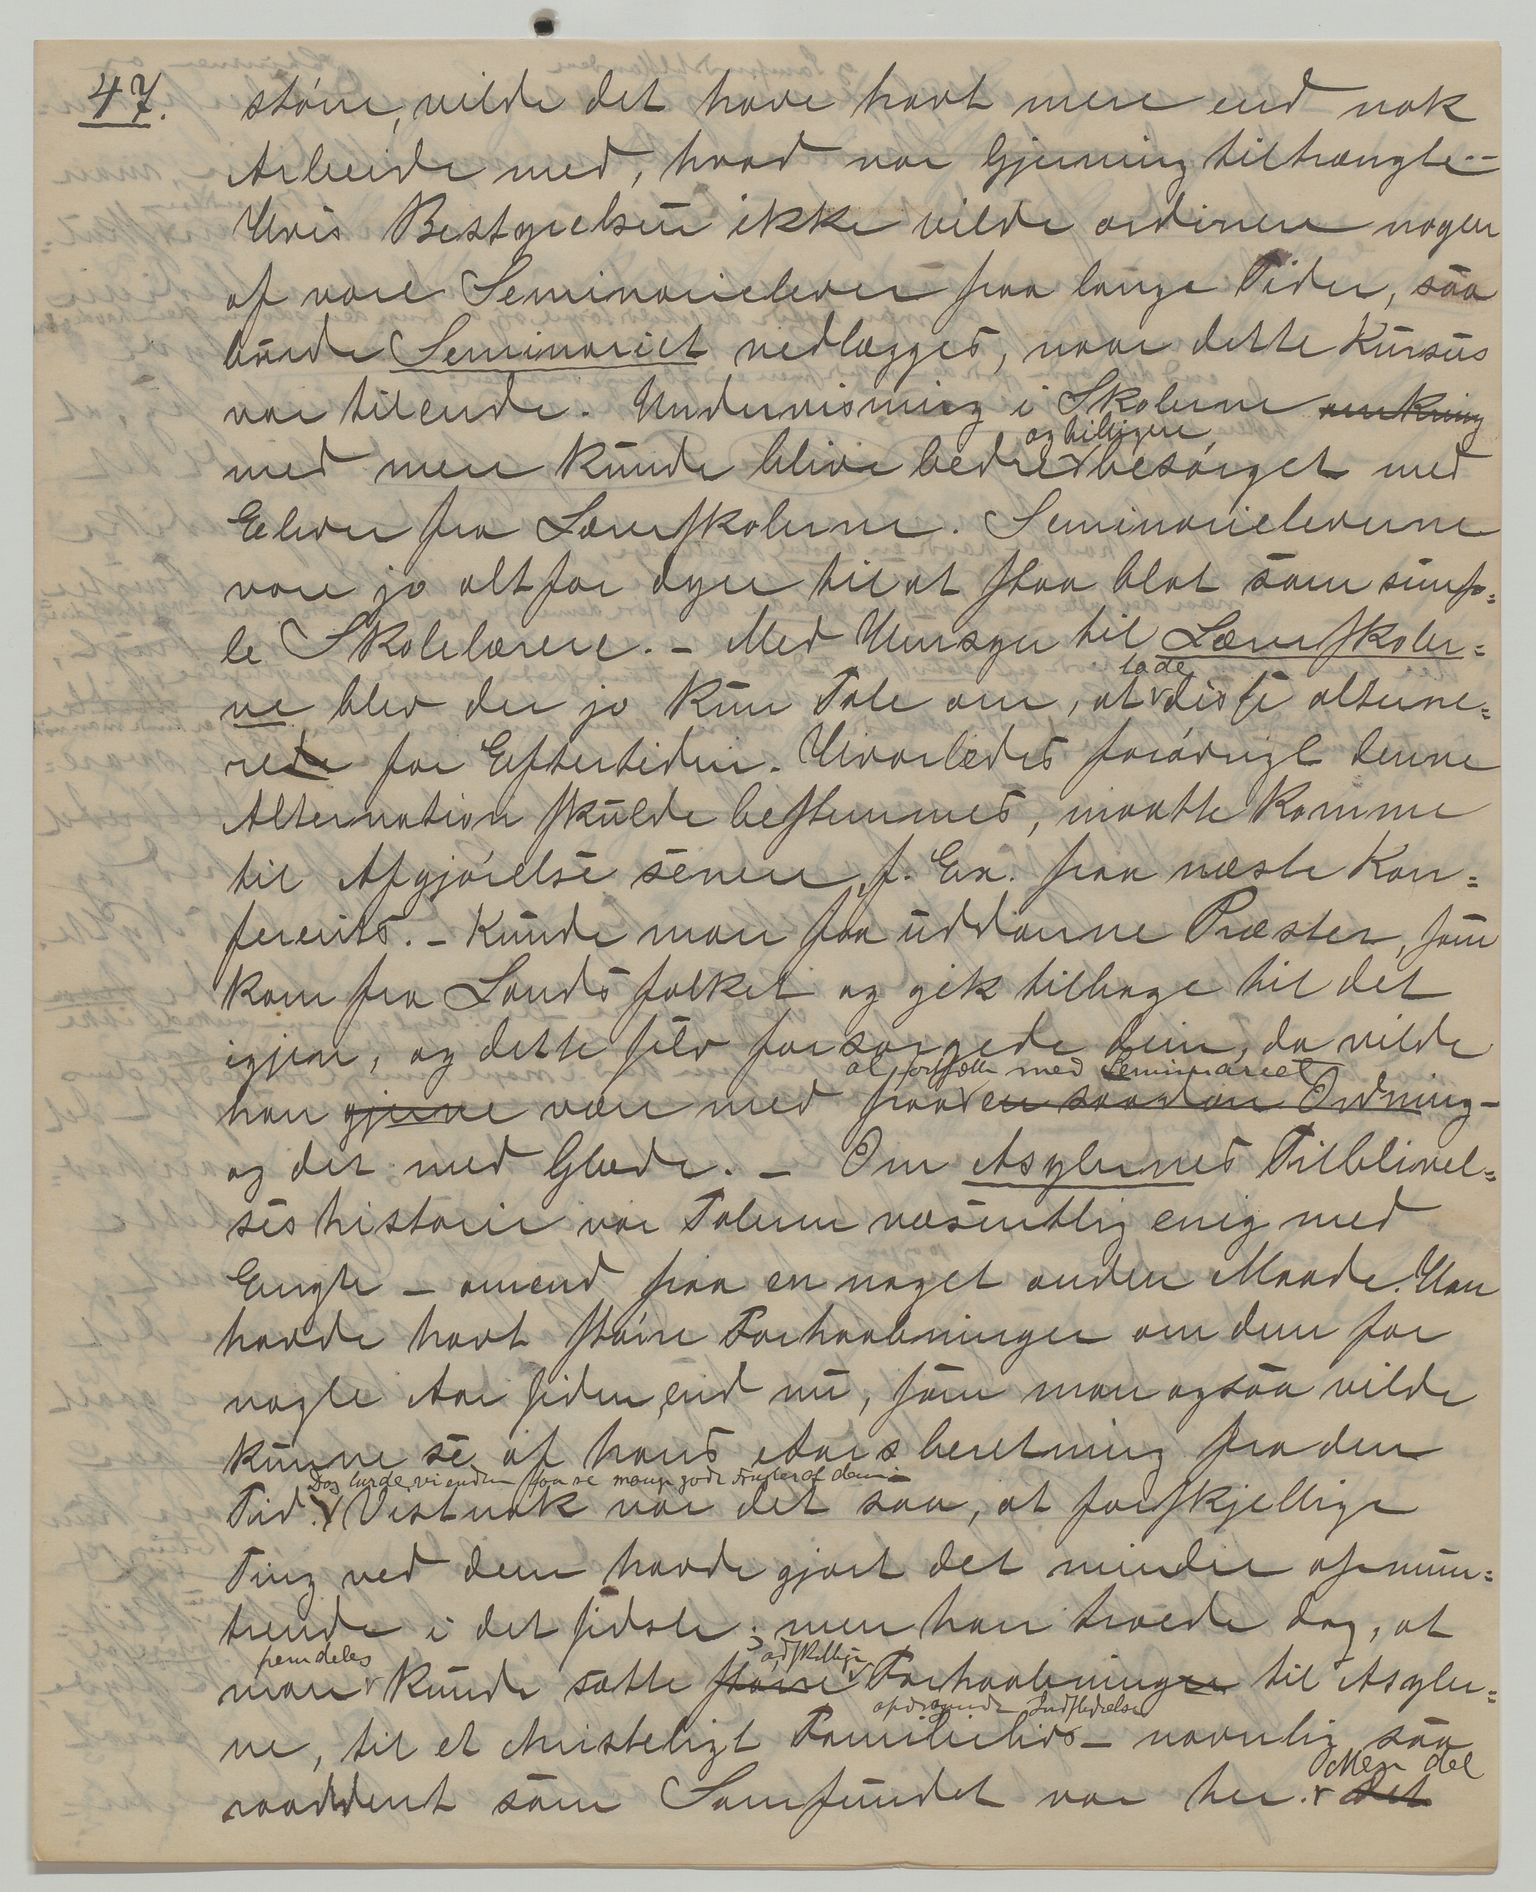 47. større, vilde det have havt mere end nok
Arbeide med, hvad vor Gjerning tiltrængte. –
Hvis Bestyrelsen ikke vilde ordinere nogen
af vore Seminarielever paa lange Tider, saa
burde Seminariet nedlægges, naar dette Kursus
var tilende. Undervisning i Skolerne omkring
og billigere
med mere kunde blive bedre besørget med
Elever fra Lærerskolerne. Seminarieleverne
vare jo altfor dyre til at staa blot som simp=
le Skolelærere. – Med Hensyn til Lærerskoler=
lade
ne blev der jo kun Tale om, at disse alterne=
rede for Eftertiden. Hvorledes forøvrigt denne
Alternation skulde bestemmes, maatte komme
til Afgjørelse senere, f. Ex. paa næste Kon=
ferents. – Kunde man faa uddanne Præster, som
kom fra Landsfolket og gik tilbage til det
igjen, og dette selv forsørgede dem, da vilde
at fortsætte med Seminariet
han gjerne være med paa en saadan Ordning –
og det med Glæde. – Om Asylernes Tilblivel=
seshistorie var Taleren væsentlig enig med
Engh – omend paa en noget anden Maade. Han
havde havt større Forhaabninger om dem for
nogle Aar siden, end nu, som man ogsaa vilde
kunne se af hans Aarsberetning fra den
Dog turde vi endnu faa se mange gode Frugter af dem. –
Tid. Vistnok var det saa, at forskjellige
Ting ved dem havde gjort det mindre opmun=
trende i det sidste; men han troede dog, at
fremdeles adskillige
man kunde sætte større Forhaabninger til Asyler=
opdragende Indflydelse
ne, til et christeligt Familieliv – navnlig saa
Men det
raaddent som Samfundet var her. Det